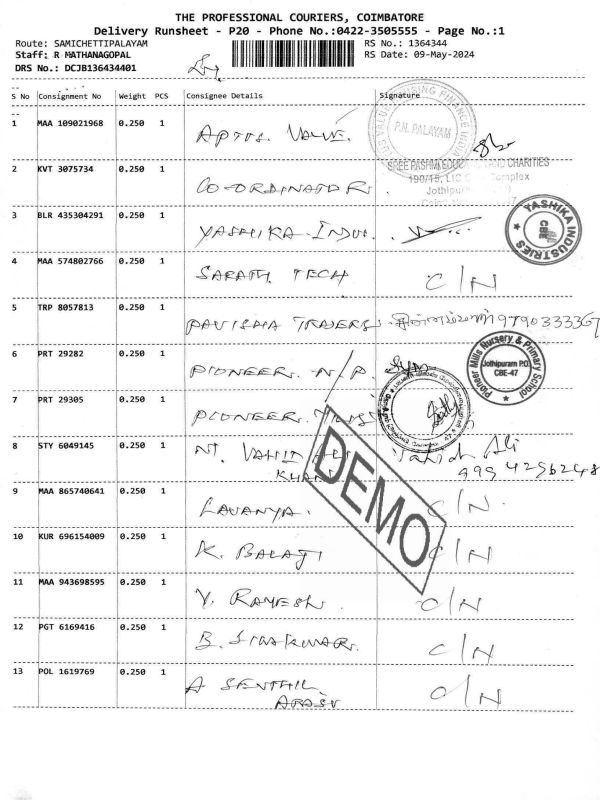 THE PROFESSIONAL COURIERS, COIMBATORE
Delivery Runsheet - P20 - Phone No.:0422-3505555 - Page No.:1
Route: SAMICHETTIPALAYAM RS No.: 1364344
Staff: R MATHANAGOPAL RS Date: 09-May-2024
DRS No.: DCJB136434401
S No Consignment No Weight PCS Consignee Details Signature
1 MAA 109021968 0.250 1 APTUS. VALUE.
P.N. PALAYAM
2 KVT 3075734 0.250 1 CO-ORDINATOR
SREE PASHMI EDUCATION AND CHARITIES
190/15, LIC Complex
3 BLR 435304291 0.250 1 YASHIKA-INDU.
YASHIKA INDUSTRIES
CBE
4 MAA 574802766 0.250 1 SARATH TECH C/N
5 TRP 8057813 0.250 1 PAVISHA TRADERS 9790333367
6 PRT 29282 0.250 1 PIONEER. N/P
Pioneer Mills Nursery & Primary School
Jothipuram P.O.
CBE-47
7 PRT 29305 0.250 1 PIONEER.
8 STY 6049145 0.250 1 MT. VAHID ALI Vahid Ali
KHAN 9994296248
DEMO
9 MAA 865740641 0.250 1 LAVANYA. C/N.
10 KUR 696154009 0.250 1 K. BALAJI C/N
11 MAA 943698595 0.250 1 V. RAMESH. C/N
12 PGT 6169416 0.250 1 B. SIVAKUMAR. C/N
13 POL 1619769 0.250 1 A SENTHIL C/N
ARASU